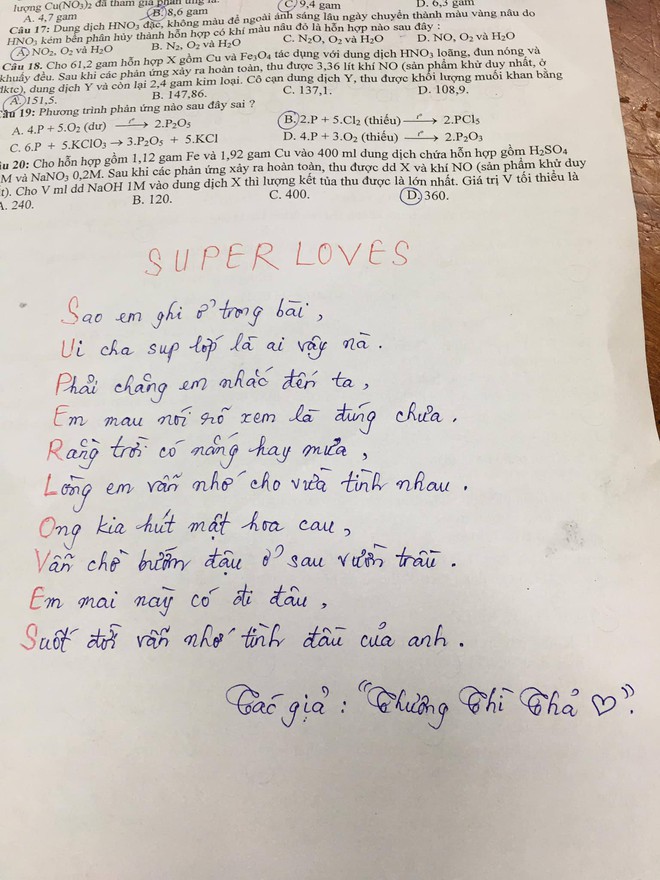 lượng Cu(NO₃)₂ đã tham gia phản ứng là.
A. 4,7 gam B. 8,6 gam C. 9,4 gam D. 6,3 gam
Câu 17: Dung dịch HNO₃ đặc, không màu để ngoài ánh sáng lâu ngày chuyển thành màu vàng nâu do
HNO₃ kém bền phân hủy thành hỗn hợp có khí màu nâu đỏ là hỗn hợp nào sau đây :
A. NO₂, O₂ và H₂O B. N₂, O₂ và H₂O C. N₂O, O₂ và H₂O D. NO, O₂ và H₂O
Câu 18. Cho 61,2 gam hỗn hợp X gồm Cu và Fe₃O₄ tác dụng với dung dịch HNO₃ loãng, đun nóng và
khuấy đều. Sau khi các phản ứng xảy ra hoàn toàn, thu được 3,36 lít khí NO (sản phẩm khử duy nhất, ở
đktc), dung dịch Y và còn lại 2,4 gam kim loại. Cô cạn dung dịch Y, thu được khối lượng muối khan bằng
A. 151,5. B. 147,86. C. 137,1. D. 108,9.
Câu 19: Phương trình phản ứng nào sau đây sai ?
A. 4.P + 5.O₂ (dư) —t°→ 2.P₂O₅ B. 2.P + 5.Cl₂ (thiếu) —t°→ 2.PCl₅
C. 6.P + 5.KClO₃ → 3.P₂O₅ + 5.KCl D. 4.P + 3.O₂ (thiếu) —t°→ 2.P₂O₃
âu 20: Cho hỗn hợp gồm 1,12 gam Fe và 1,92 gam Cu vào 400 ml dung dịch chứa hỗn hợp gồm H₂SO₄
M và NaNO₃ 0,2M. Sau khi các phản ứng xảy ra hoàn toàn, thu được dd X và khí NO (sản phẩm khử duy
t). Cho V ml dd NaOH 1M vào dung dịch X thì lượng kết tủa thu được là lớn nhất. Giá trị V tối thiểu là
A. 240. B. 120. C. 400. D. 360.
SUPER LOVES
Sao em ghi ở trong bài,
Ui cha sup lốp là ai vậy nà.
Phải chăng em nhắc đến ta,
Em mau nói rõ xem là đúng chưa.
Rằng trời có nắng hay mưa,
Lòng em vẫn nhớ cho vừa tình nhau.
Ong kia hút mật hoa cau,
Vẫn chờ bướm đậu ở sau vườn trầu.
Em mai này có đi đâu,
Suốt đời vẫn nhớ tình đầu của anh.
Tác giả : "Thương Thì Thả ♡".